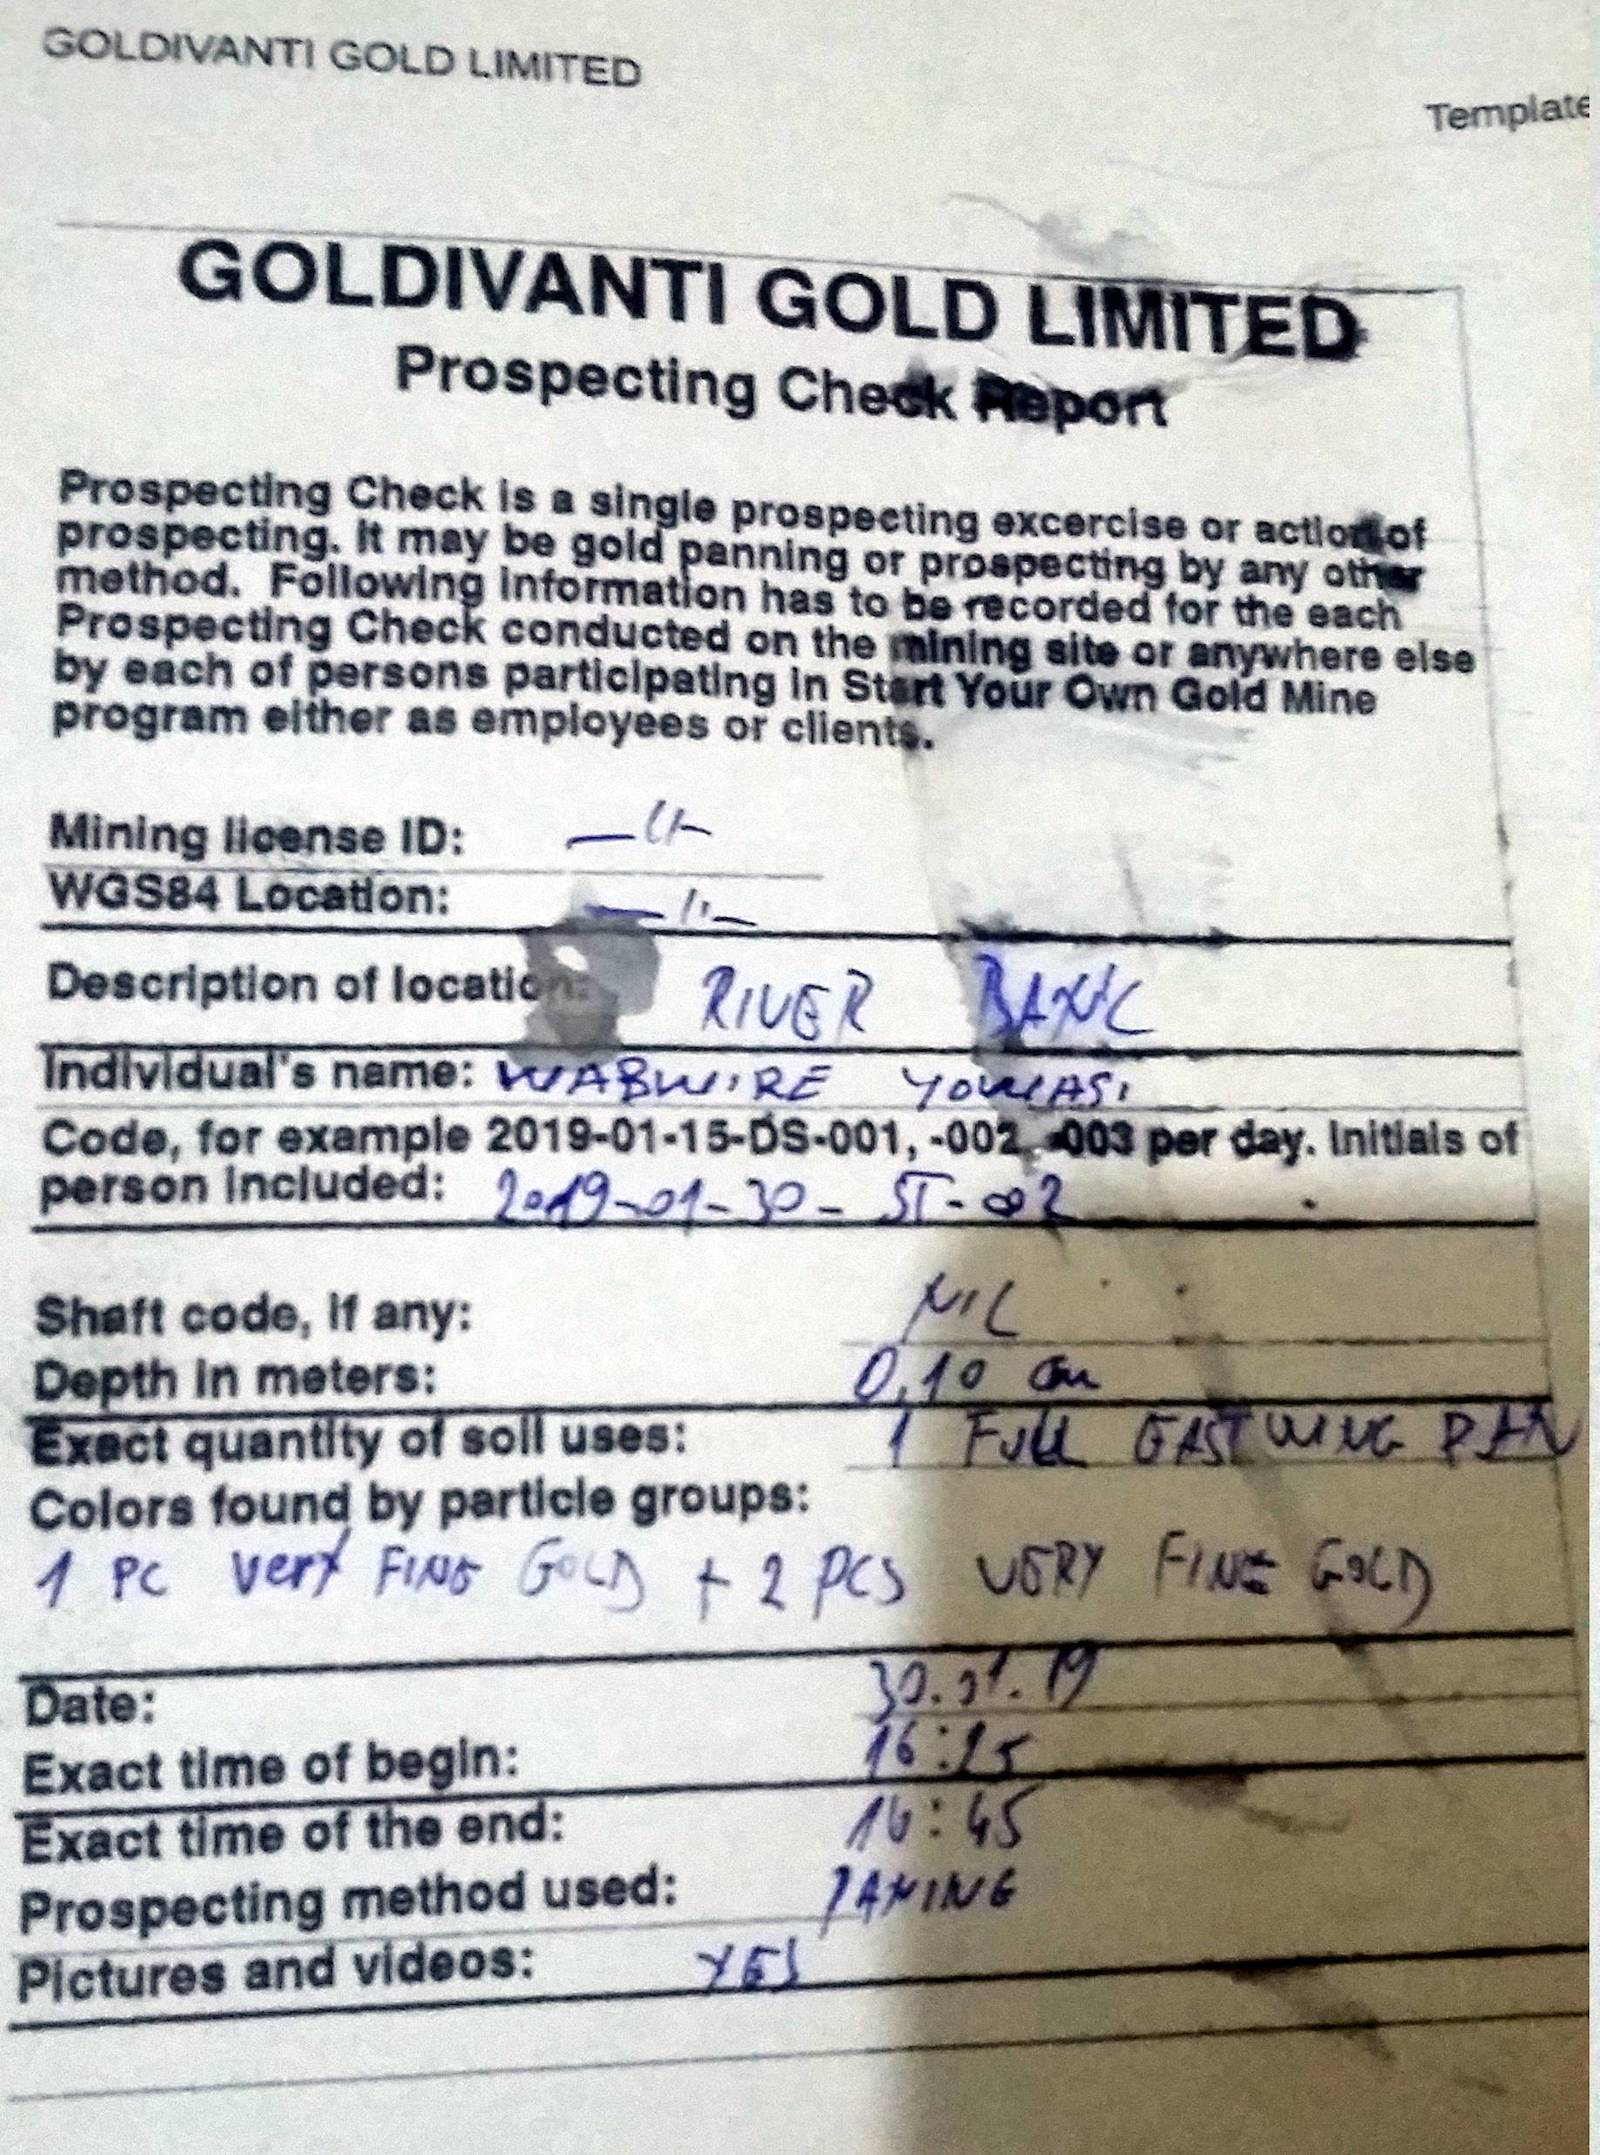 GOLDIVANTI GOLD LIMITED
Template
GOLDIVANTI GOLD LIMITED
Prospecting Check Report
Prospecting Check is a single prospecting excercise or action of
prospecting. It may be gold panning or prospecting by any other
method. Following information has to be recorded for the each
Prospecting Check conducted on the mining site or anywhere else
by each of persons participating in Start Your Own Gold Mine
program either as employees or clients.
Mining license ID: —〃—
WGS84 Location: —〃—
Description of location: RIVER BANK
Individual's name: WABWIRE
Code, for example 2019-01-15-DS-001, -002, -003 per day. Initials of
person included: 2019-01-30-ST-002
Shaft code, if any: NIL
Depth in meters: 0,10 cm
Exact quantity of soil uses: 1 FULL GASTWING PAN
Colors found by particle groups:
1 PC very FINE GOLD + 2 PCS VERY FINE GOLD
Date: 30.01.19
Exact time of begin: 16:25
Exact time of the end: 16:45
Prospecting method used: PANING
Pictures and videos: YES